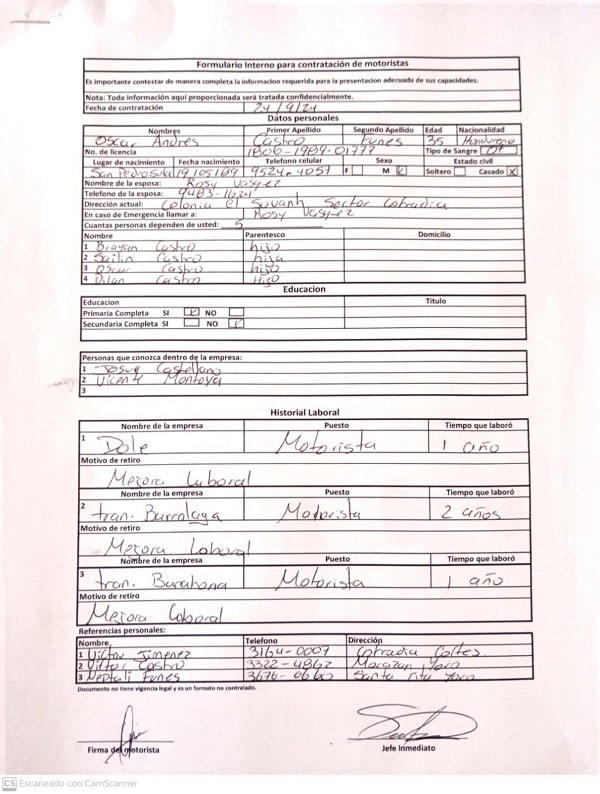 Formulario Interno para contratación de motoristas
Es importante contestar de manera completa la informacion requerida para la presentacion adecuada de sus capacidades.
Nota: Toda información aqui proporcionada será tratada confidencialmente.
Fecha de contratación 24/9/24
Datos personales
Nombres Primer Apellido Segundo Apellido Edad Nacionalidad
Oscar Andres Castro Funes 35 Hondureño
No. de licencia 1806-1989-01777 Tipo de Sangre O+
Lugar de nacimiento Fecha nacimiento Telefono celular Sexo Estado civil
San Pedro Sula 19/05/89 9524-4057 F M Soltero Casado X
Nombre de la esposa: Rosy Vasquez
Telefono de la esposa: 9483-1624
Dirección actual: Colonia el Sector Cofradia
En caso de Emergencia llamar a: Rosy Vasquez
Cuantas personas dependen de usted: 5
Nombre Parentesco Domicilio
1 Brayan Castro hijo
2 Castro hija
3 Oscar Castro hijo
4 Dilan Castro Hijo
Educacion
Educacion Titulo
Primaria Completa SI NO
Secundaria Completa SI NO
Personas que conozca dentro de la empresa:
1 Josue Castellano
2 Vicente Montoya
3
Historial Laboral
Nombre de la empresa Puesto Tiempo que laboró
1 Dole Motorista 1 año
Motivo de retiro
Mejora Laboral
Nombre de la empresa Puesto Tiempo que laboró
2 tran. Motorista 2 años
Motivo de retiro
Mejora Laboral
Nombre de la empresa Puesto Tiempo que laboró
3 tran. Barahona Motorista 1 año
Motivo de retiro
Mejora Laboral
Referencias personales:
Nombre Telefono Dirección
1 Victor Jimenez 3164-0007 Cofradia Cortes.
2 Victor Castro 3322-4862 Morazan, Yoro
3 Neptali Funes 3676-0660 Santa rita Yoro
Documento no tiene vigencia legal y es un formato no contralado.
Firma del motorista Jefe Inmediato
CS Escaneado con CamScanner